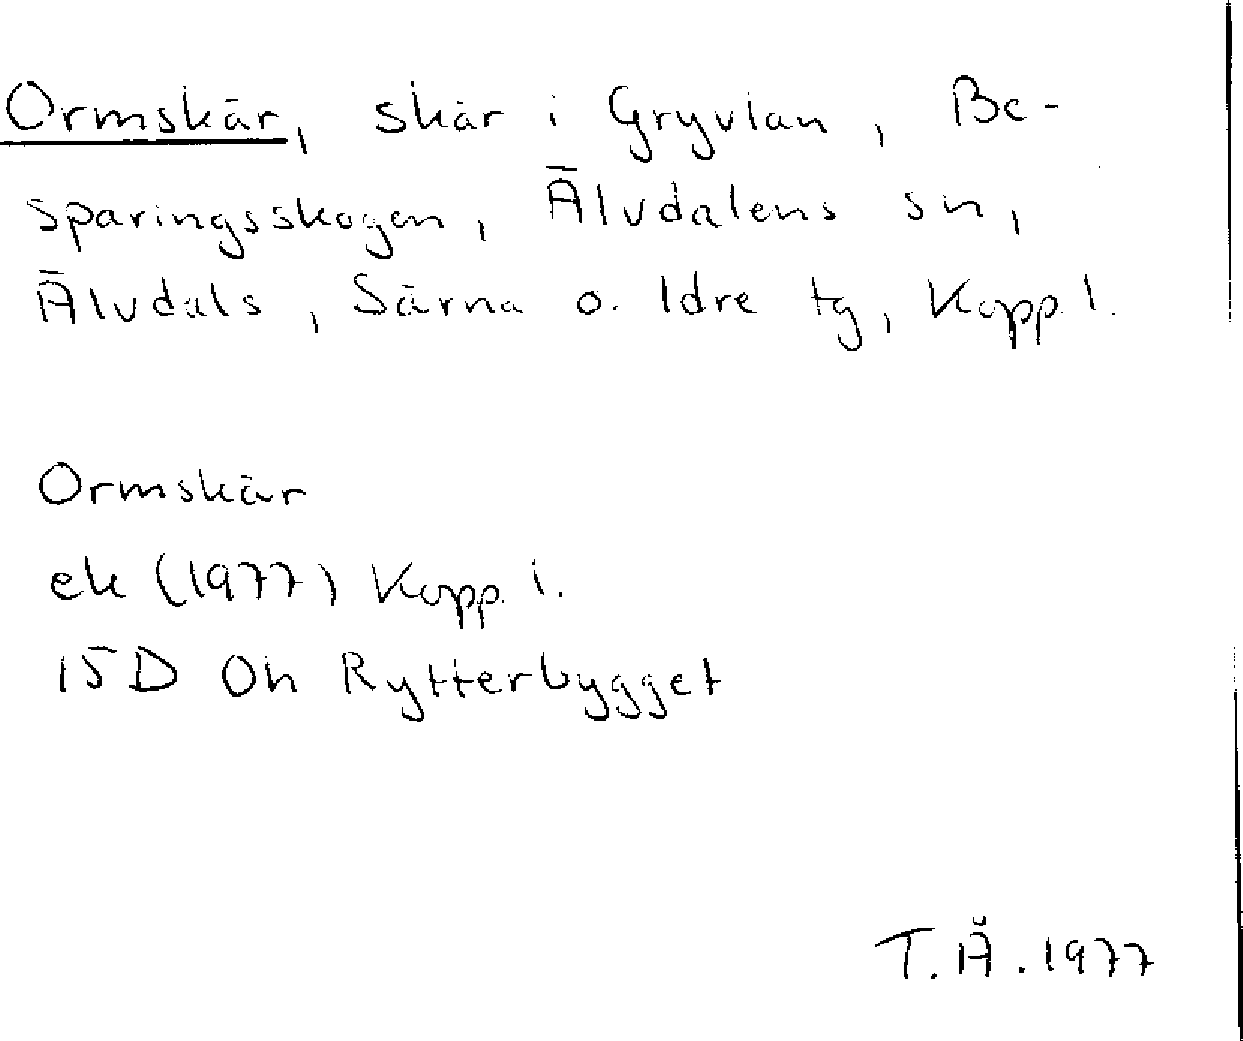 Ormskär, skär i Gryvlan, Be-
sparingsskogen, Älvdalens sn,
Älvdals, Särna o. Idre tg, Kopp l.
Ormskär
ek (1977) Kopp. l.
15D 0h Rytterbygget
T.Å. 1977